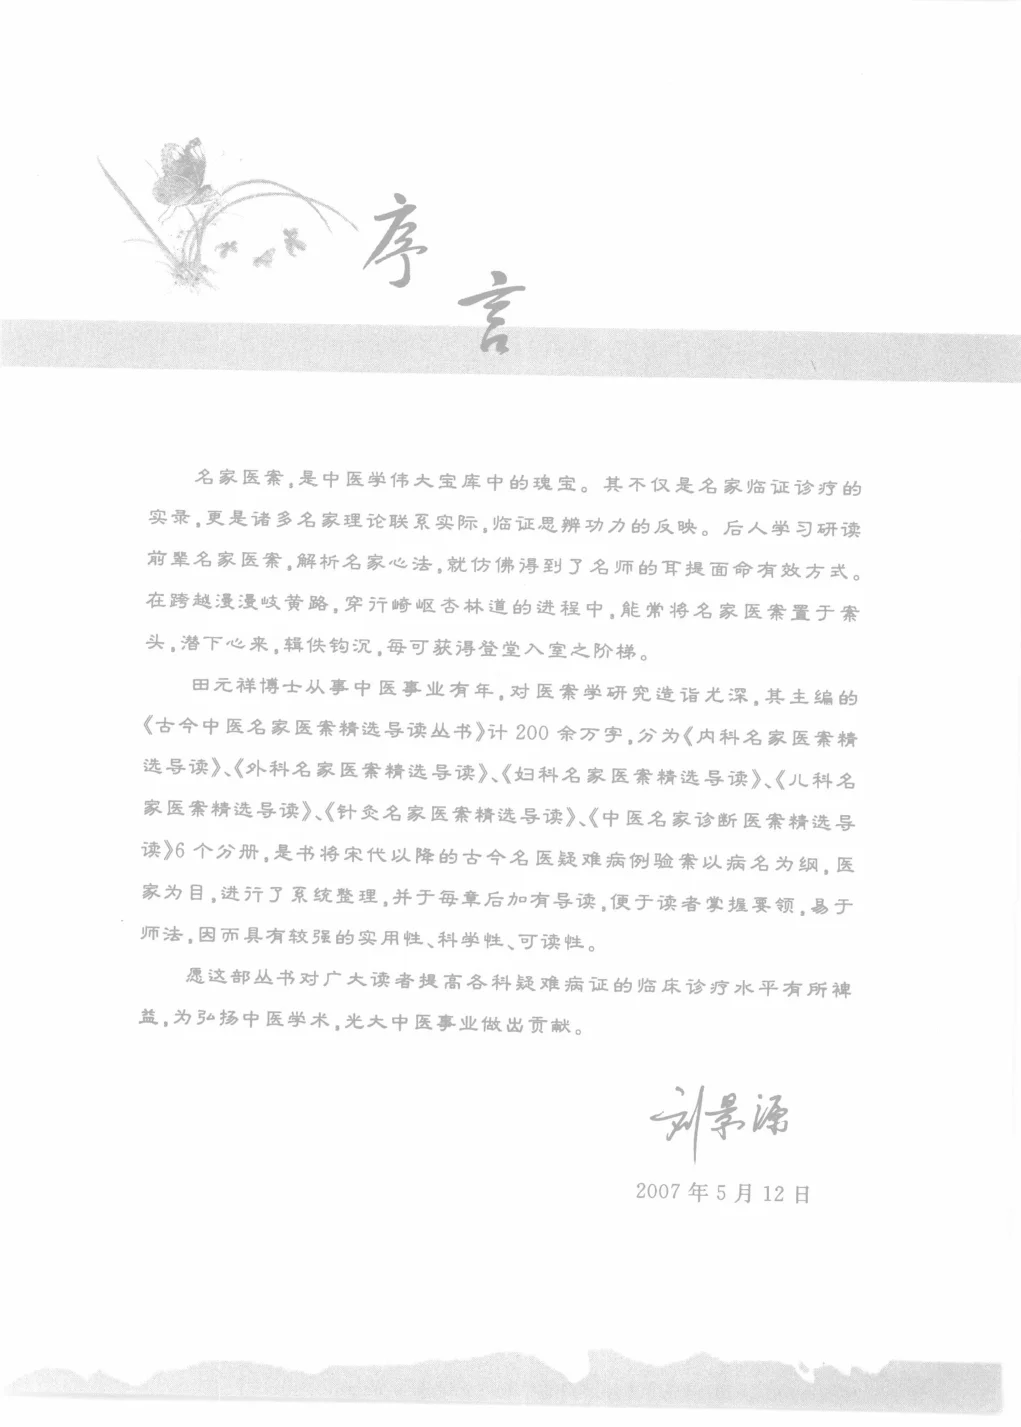 序言
名家医案,是中医学伟大宝库中的瑰宝。其不仅是名家临证诊疗的
实录,更是诸多名家理论联系实际,临证思辨功力的反映。后人学习研读
前辈名家医案,解析名家心法,就仿佛得到了名师的耳提面命有效方式。
在跨越漫漫岐黄路,穿行崎岖杏林道的进程中,能常将名家医案置于案
头,潜下心来,辑佚钩沉,每可获得登堂入室之阶梯。
田元祥博士从事中医事业有年,对医案学研究造诣尤深,其主编的
《古今中医名家医案精选导读丛书》计200余万字,分为《内科名家医案精
选导读》、《外科名家医案精选导读》、《妇科名家医案精选导读》、《儿科名
家医案精选导读》、《针灸名家医案精选导读》、《中医名家诊断医案精选导
读》6个分册,是书将宋代以降的古今名医疑难病例验案以病名为纲,医
家为目,进行了系统整理,并于每章后加有导读,便于读者掌握要领,易于
师法,因而具有较强的实用性、科学性、可读性。
愿这部丛书对广大读者提高各科疑难病证的临床诊疗水平有所裨
益,为弘扬中医学术,光大中医事业做出贡献。
刘景源
2007年5月12日